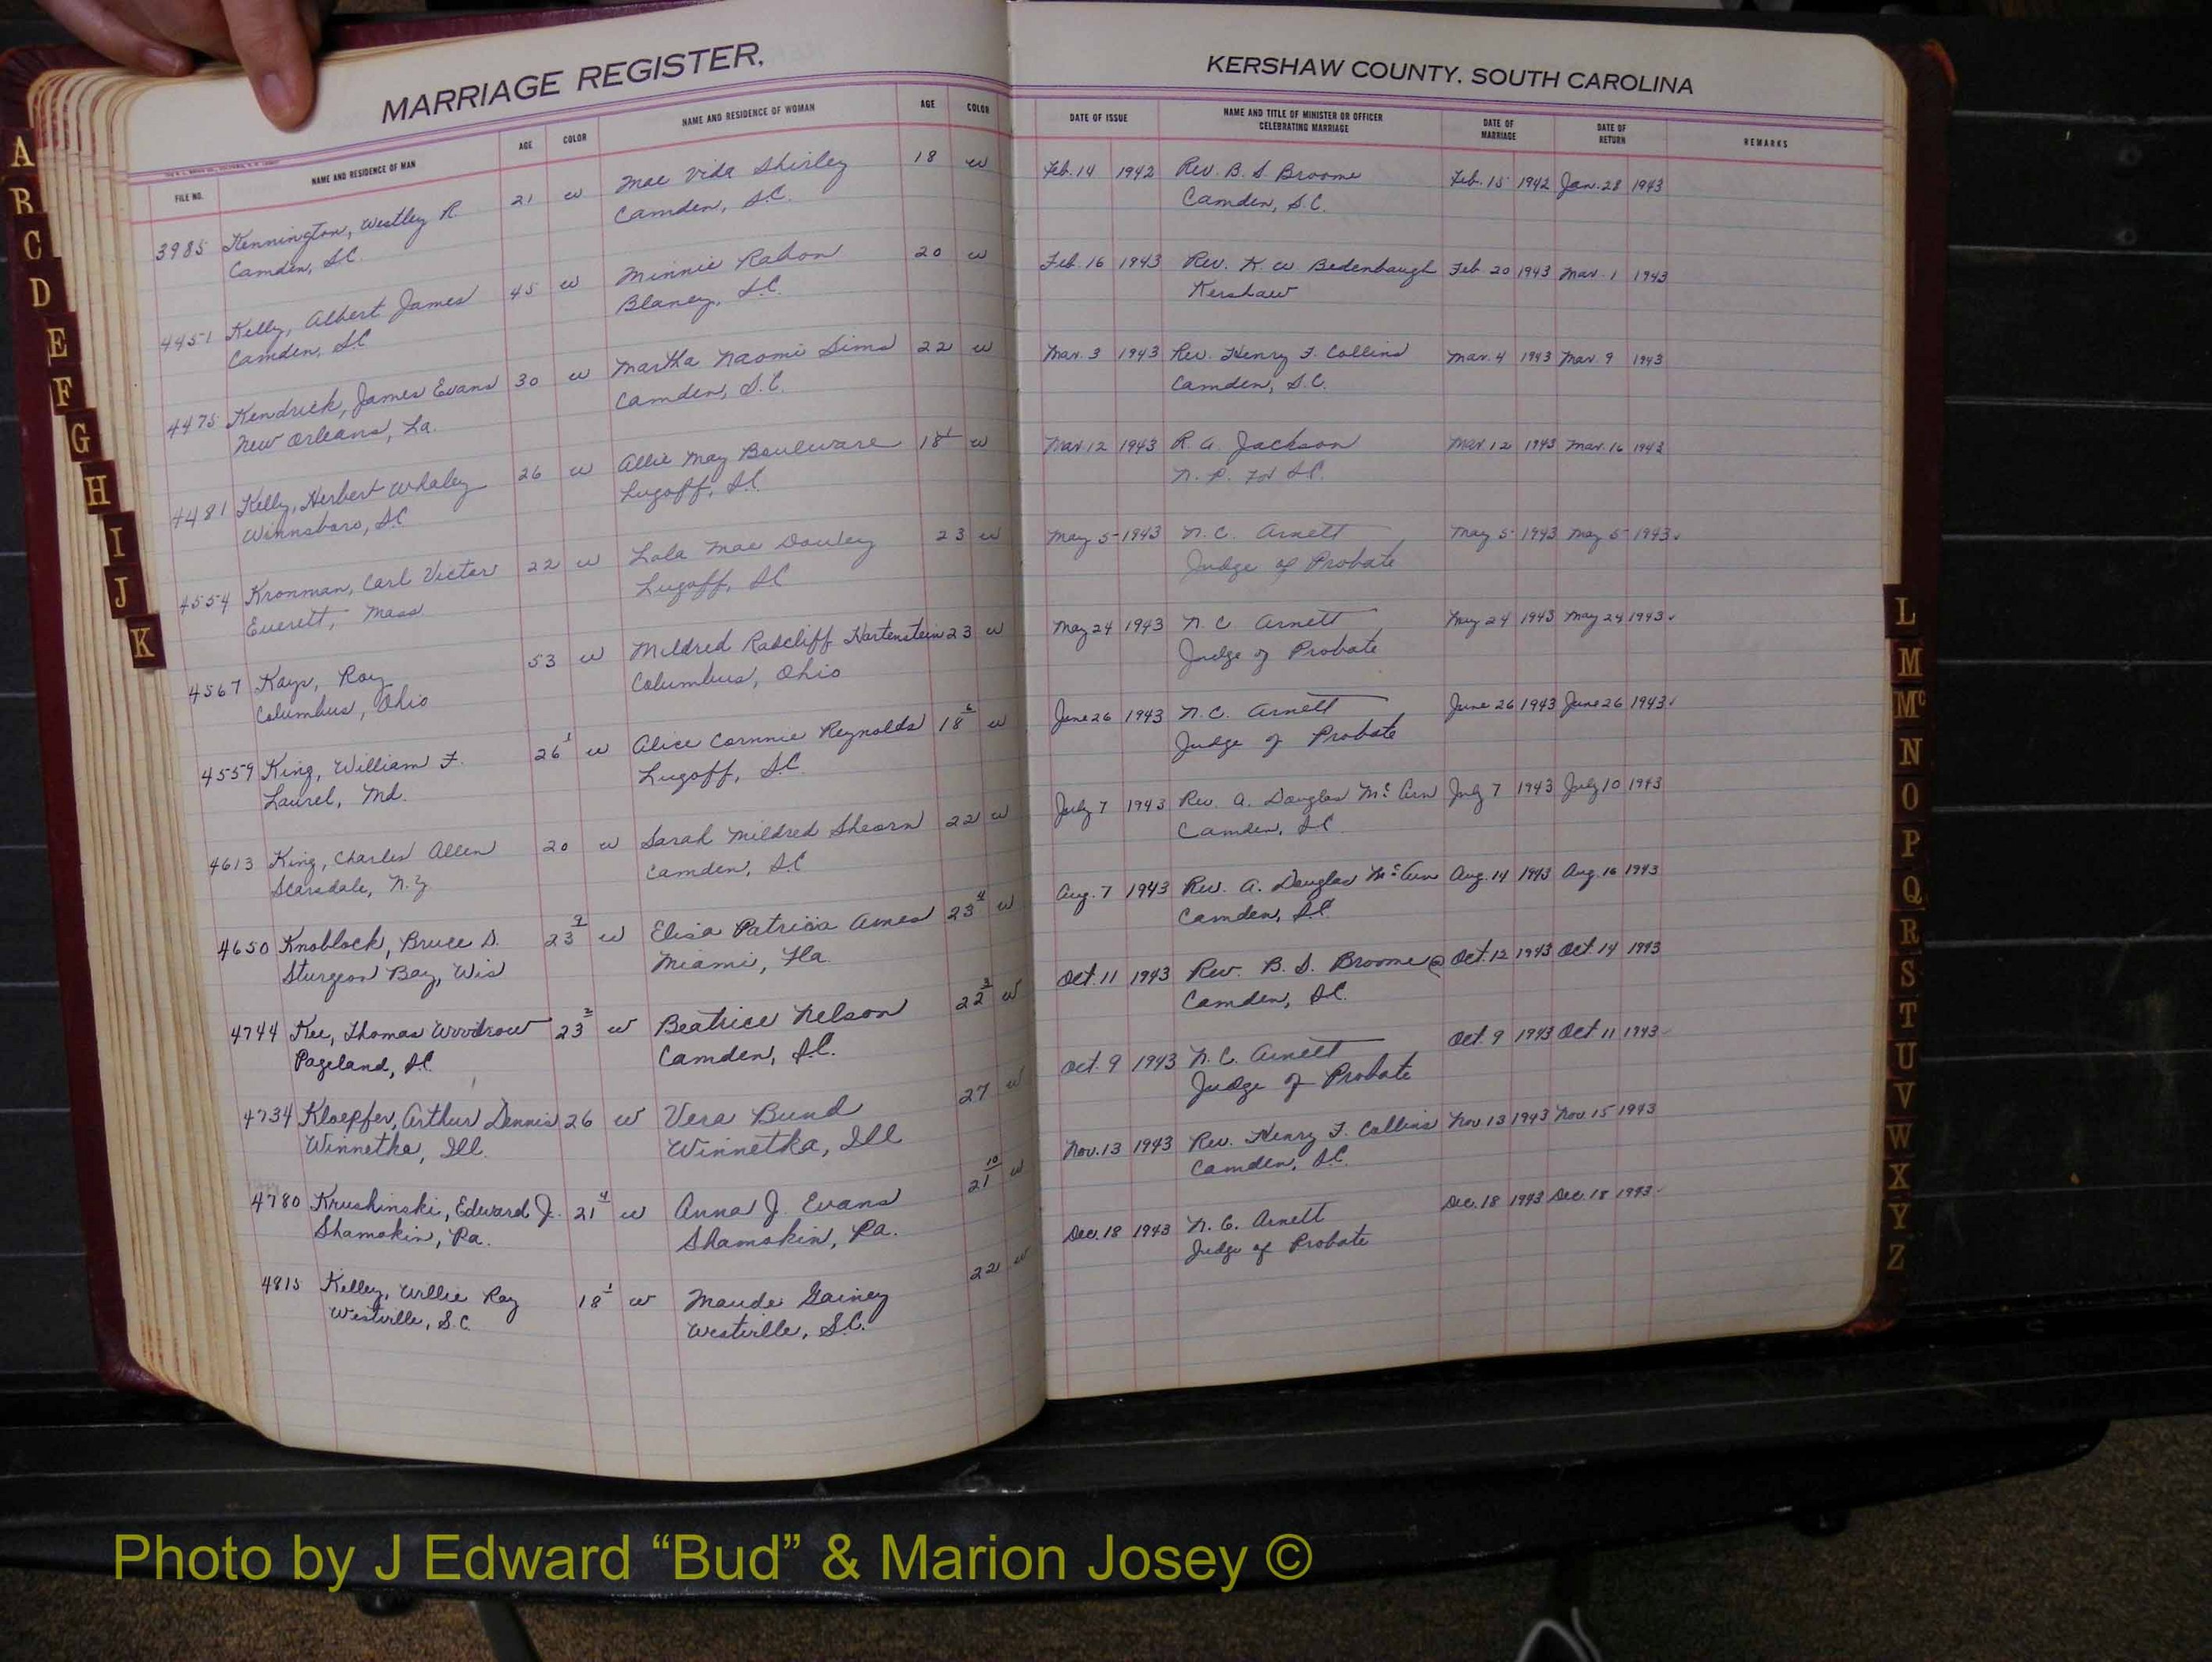 MARRIAGE REGISTER.
KERSHAW COUNTY. SOUTH CAROLINA
FILE NO. NAME AND RESIDENCE OF MAN AGE COLOR NAME AND RESIDENCE OF WOMAN AGE COLOR DATE OF ISSUE NAME AND TITLE OF MINISTER OR OFFICER CELEBRATING MARRIAGE DATE OF MARRIAGE DATE OF RETURN REMARKS
3985 Kennington, Westley R. 21 w Mae Vida Shirley 18 w Feb. 14 1942 Rev. B. S. Broome Feb. 15 1942 Jan. 28 1943
Camden, S.C. Camden, S.C. Camden, S.C.
4451 Kelly, Albert James 45 w Minnie Rabon 20 w Feb. 16 1943 Rev. K. W Bedenbaugh Feb. 20 1943 Mar. 1 1943
Camden, SC Blaney, S.C. Kershaw
4475 Kendrick, James Evans 30 w Martha Naomi Sims 22 w Mar. 3 1943 Rev. Henry F. Collins Mar. 4 1943 Mar. 9 1943
New Orleans, La. Camden, S.C. Camden, S.C.
4481 Kelly, Herbert Whaley 26 w Allie May Bouleware 18 1 w Mar. 12 1943 R. A. Jackson Mar. 12 1943 Mar. 16 1943
Winnsboro, SC Lugoff, SC N. P. for S.C.
4554 Kronman, Carl Victor 22 w Lola Mae 23 w May 5 1943 N. C. Arnett May 5 1943 May 5 1943
Everett, Mass Lugoff, SC Judge of Probate
4567 Kays, Roy 53 w Mildred Radcliff Hartenstein 23 w May 24 1943 N. C. Arnett May 24 1943 May 24 1943
Columbus, Ohio Columbus, Ohio Judge of Probate
4559 King, William F. 26 1 w Alice Reynolds 18 6 w June 26 1943 N. C. Arnett June 26 1943 June 26 1943
Laurel, Md. Lugoff, SC Judge of Probate
4613 King, Charles Allen 20 w Sarah Mildred Shearn 22 w July 7 1943 Rev. A. Douglas McArn July 7 1943 July 10 1943
Scarsdale, N.Y Camden, SC Camden, SC
4650 Knoblock, Bruce D. 23 9 w Elisa Patricia Ames 23 4 w Aug. 7 1943 Rev. A. Douglas McArn Aug. 14 1943 Aug. 16 1943
Sturgeon Bay, Wis Miami, Fla. Camden, S.C.
4744 Kee, Thomas Woodrow 23 2 w Beatrice Nelson 22 3 w Oct. 11 1943 Rev. B. S. Broome Oct. 12 1943 Oct. 14 1943
Pageland, SC Camden, S.C. Camden, SC.
4734 Kloepfer, Arthur Dennis 26 w Vera Bund 27 w Oct. 9 1943 N. C. Arnett Oct. 9 1943 Oct 11 1943
Winnetka, Ill. Winnetka, Ill Judge of Probate
4780 Krushinski, Edward J. 21 4 w Anna J. Evans 21 10 w Nov. 13 1943 Rev. Henry F. Collins Nov. 13 1943 Nov. 15 1943
Shamokin, Pa. Shamokin, Pa. Camden, SC.
4815 Kelley, Willie Ray 18 1 w Maude Gainey 22 w Dec. 18 1943 N. C. Arnett Dec. 18 1943 Dec. 18 1943
Westville, S.C. Westville, S.C. Judge of Probate
A
B
C
D
E
F
G
H
I
J
K
L
M
Mc
N
O
P
Q
R
S
T
U
V
W
X
Y
Z
Photo by J Edward “Bud” & Marion Josey ©